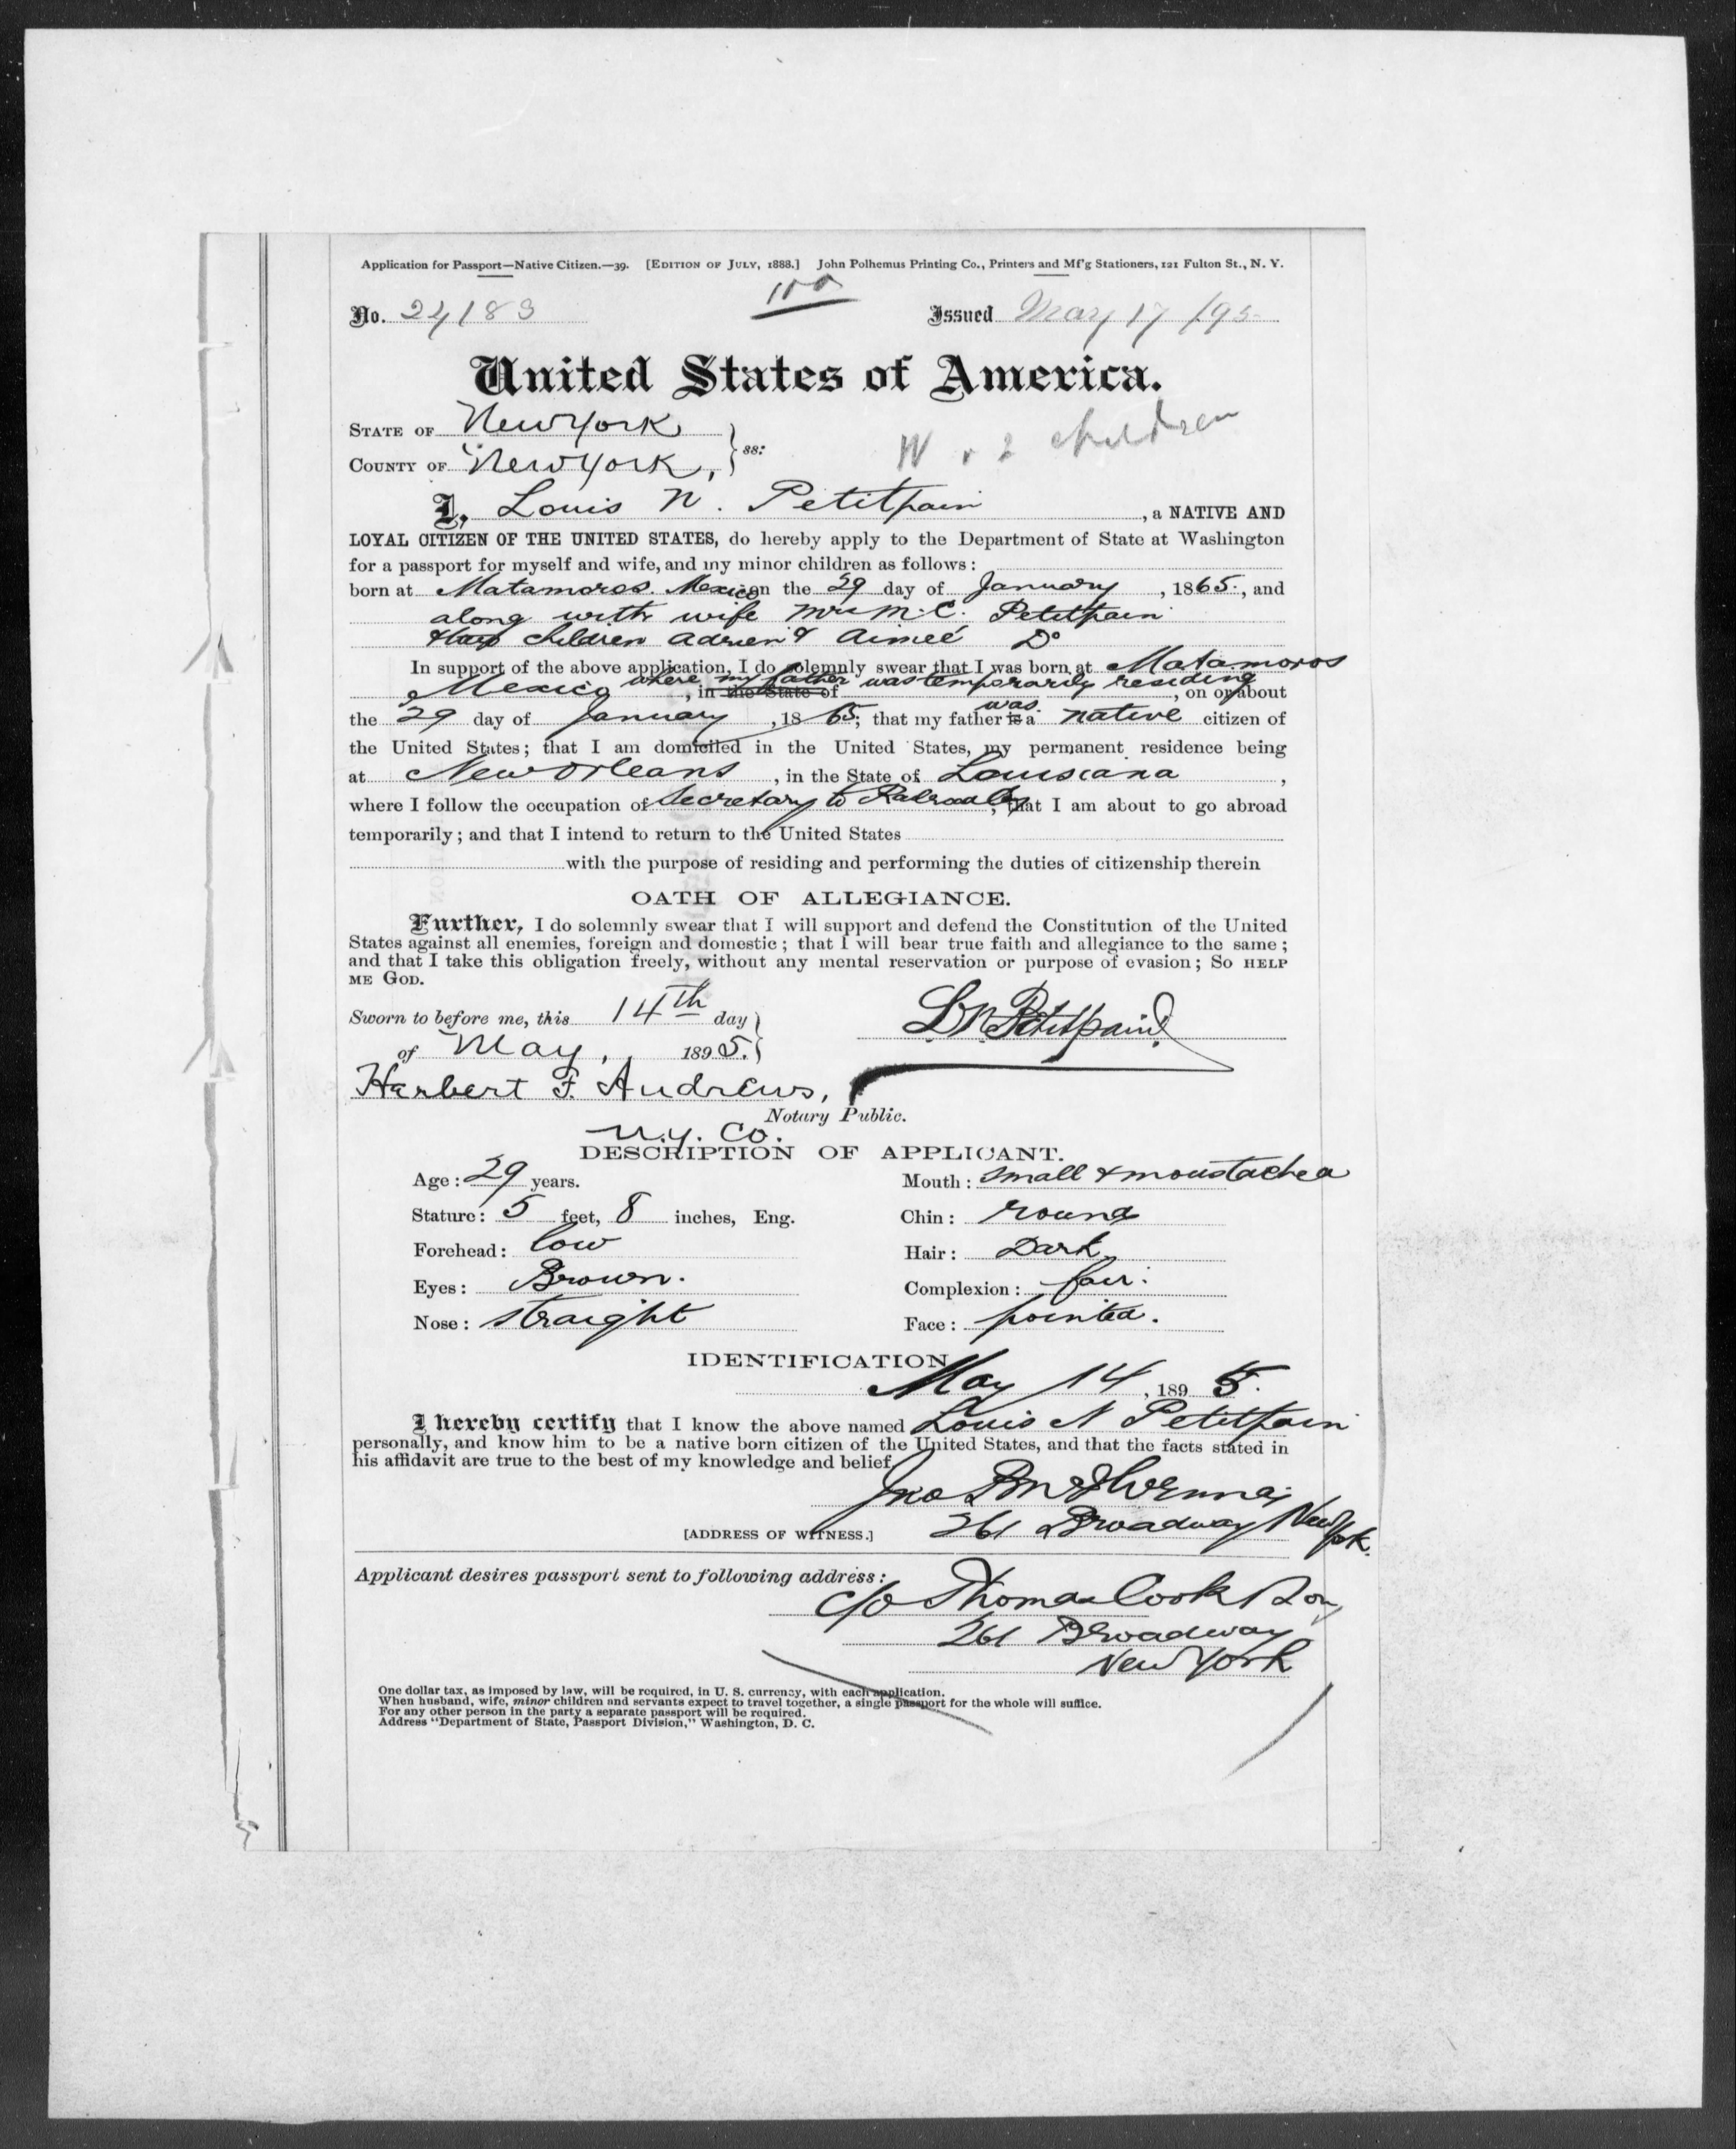 Application for Passport—Native Citizen.—39. [EDITION OF JULY, 1888.] John Polhemus Printing Co., Printers and Mf'g Stationers, 121 Fulton St., N. Y.
100
No. 24183 Issued May 17/95
United States of America.
STATE OF New York
COUNTY OF New York, } ss:
W & 2 children
I, Louis N. Petitpain, a NATIVE AND
LOYAL CITIZEN OF THE UNITED STATES, do hereby apply to the Department of State at Washington
for a passport for myself and wife, and my minor children as follows:
born at Matamoros. Mexico on the 29 day of January, 1865., and
along with wife Mrs M. C. Petitpain
children Adrien & Aimeé Do
In support of the above application, I do solemnly swear that I was born at Matamoros
Mexico where my father was temporarily residing, in the State of, on or about
the 29 day of January, 1865; that my father is was a native citizen of
the United States; that I am domiciled in the United States, my permanent residence being
at New Orleans, in the State of Louisiana,
where I follow the occupation of Secretary to Railroad Co, that I am about to go abroad
temporarily; and that I intend to return to the United States
with the purpose of residing and performing the duties of citizenship therein
OATH OF ALLEGIANCE.
Further, I do solemnly swear that I will support and defend the Constitution of the United
States against all enemies, foreign and domestic; that I will bear true faith and allegiance to the same;
and that I take this obligation freely, without any mental reservation or purpose of evasion; SO HELP
ME GOD.
Sworn to before me, this 14th day
of May, 1895. }
L. N. Petitpain
Herbert F. Andrews,
Notary Public.
N.Y. Co.
DESCRIPTION OF APPLICANT.
Age: 29 years. Mouth: small & moustache
Stature: 5 feet, 8 inches, Eng. Chin: round
Forehead: low Hair: Dark
Eyes: Brown. Complexion: fair.
Nose: straight Face: pointed.
IDENTIFICATION
May 14, 1895.
I hereby certify that I know the above named Louis N Petitpain
personally, and know him to be a native born citizen of the United States, and that the facts stated in
his affidavit are true to the best of my knowledge and belief.
Jno
[ADDRESS OF WITNESS.] 261 Broadway New York.
Applicant desires passport sent to following address:
c/o Thomas Cook & Son
261 Broadway
New York
One dollar tax, as imposed by law, will be required, in U. S. currency, with each application.
When husband, wife, minor children and servants expect to travel together, a single passport for the whole will suffice.
For any other person in the party a separate passport will be required.
Address "Department of State, Passport Division," Washington, D. C.